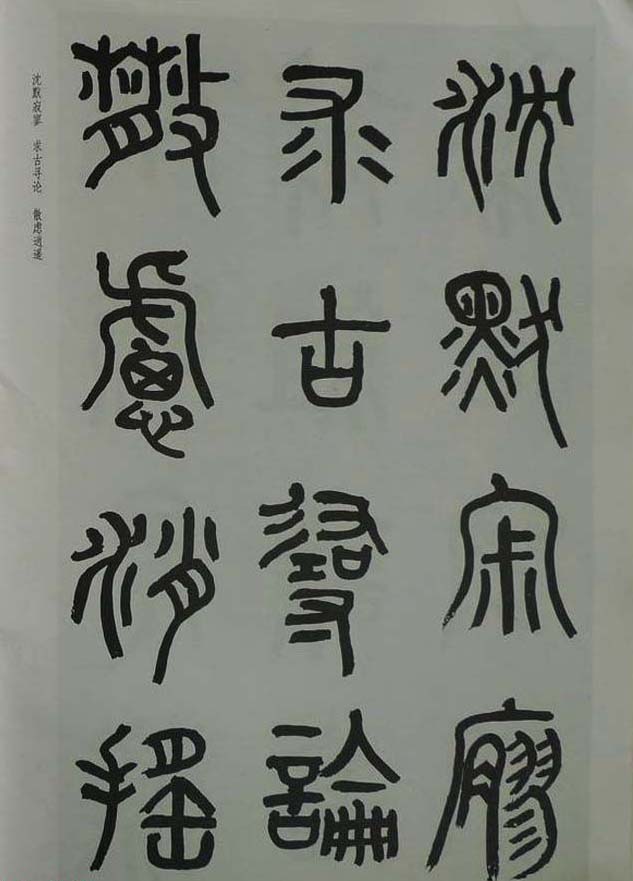 沈默寂寥
求古尋論
散慮消搖
沈默寂寥 求古寻论 散虑逍遥